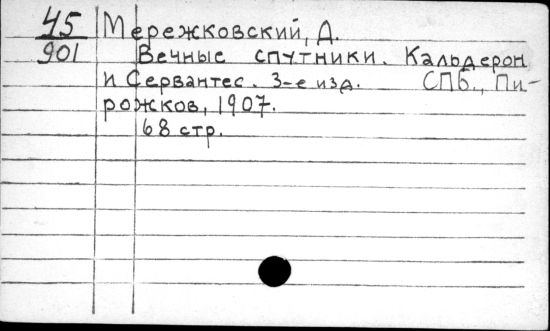 45 Мережковский, Д.
901 Вечные спутники. Кальдерон
и Сервантес. 3-е изд. СПб., Пи-
рожков, 1907.
68 стр.